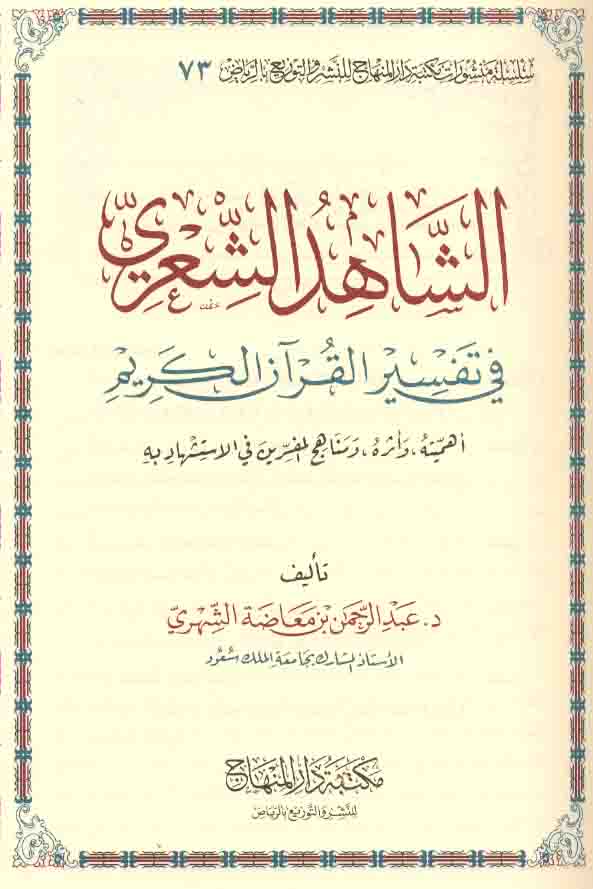 سلسلة منشورات مكتبة دار المنهاج للنشر والتوزيع بالرياض ٧٣
الشَّاهِدُ الشِّعْرِيُّ
في تَفْسِيرِ القُرْآنِ الكَرِيمِ
أهميّته، وأثرهُ، ومناهج المفسّرين في الاستشهاد بهِ
تأليف
د. عَبْد الرَّحمٰن بن مَعَاضَة الشِّهْرِيّ
الأستاذ المشارك بجامعة الملك سُعُود
مكتبة دار المنهاج
للنشر والتوزيع بالرياض